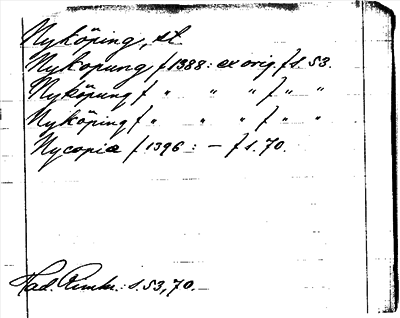 Nyköping, st
Nykopung f 1388: ex orig. f s. 53.
Nyköpung f " " " f " "
Nyköping f " " " f " "
Nycopia f 1396: — f s. 70.
Had. : s. 53, 70.